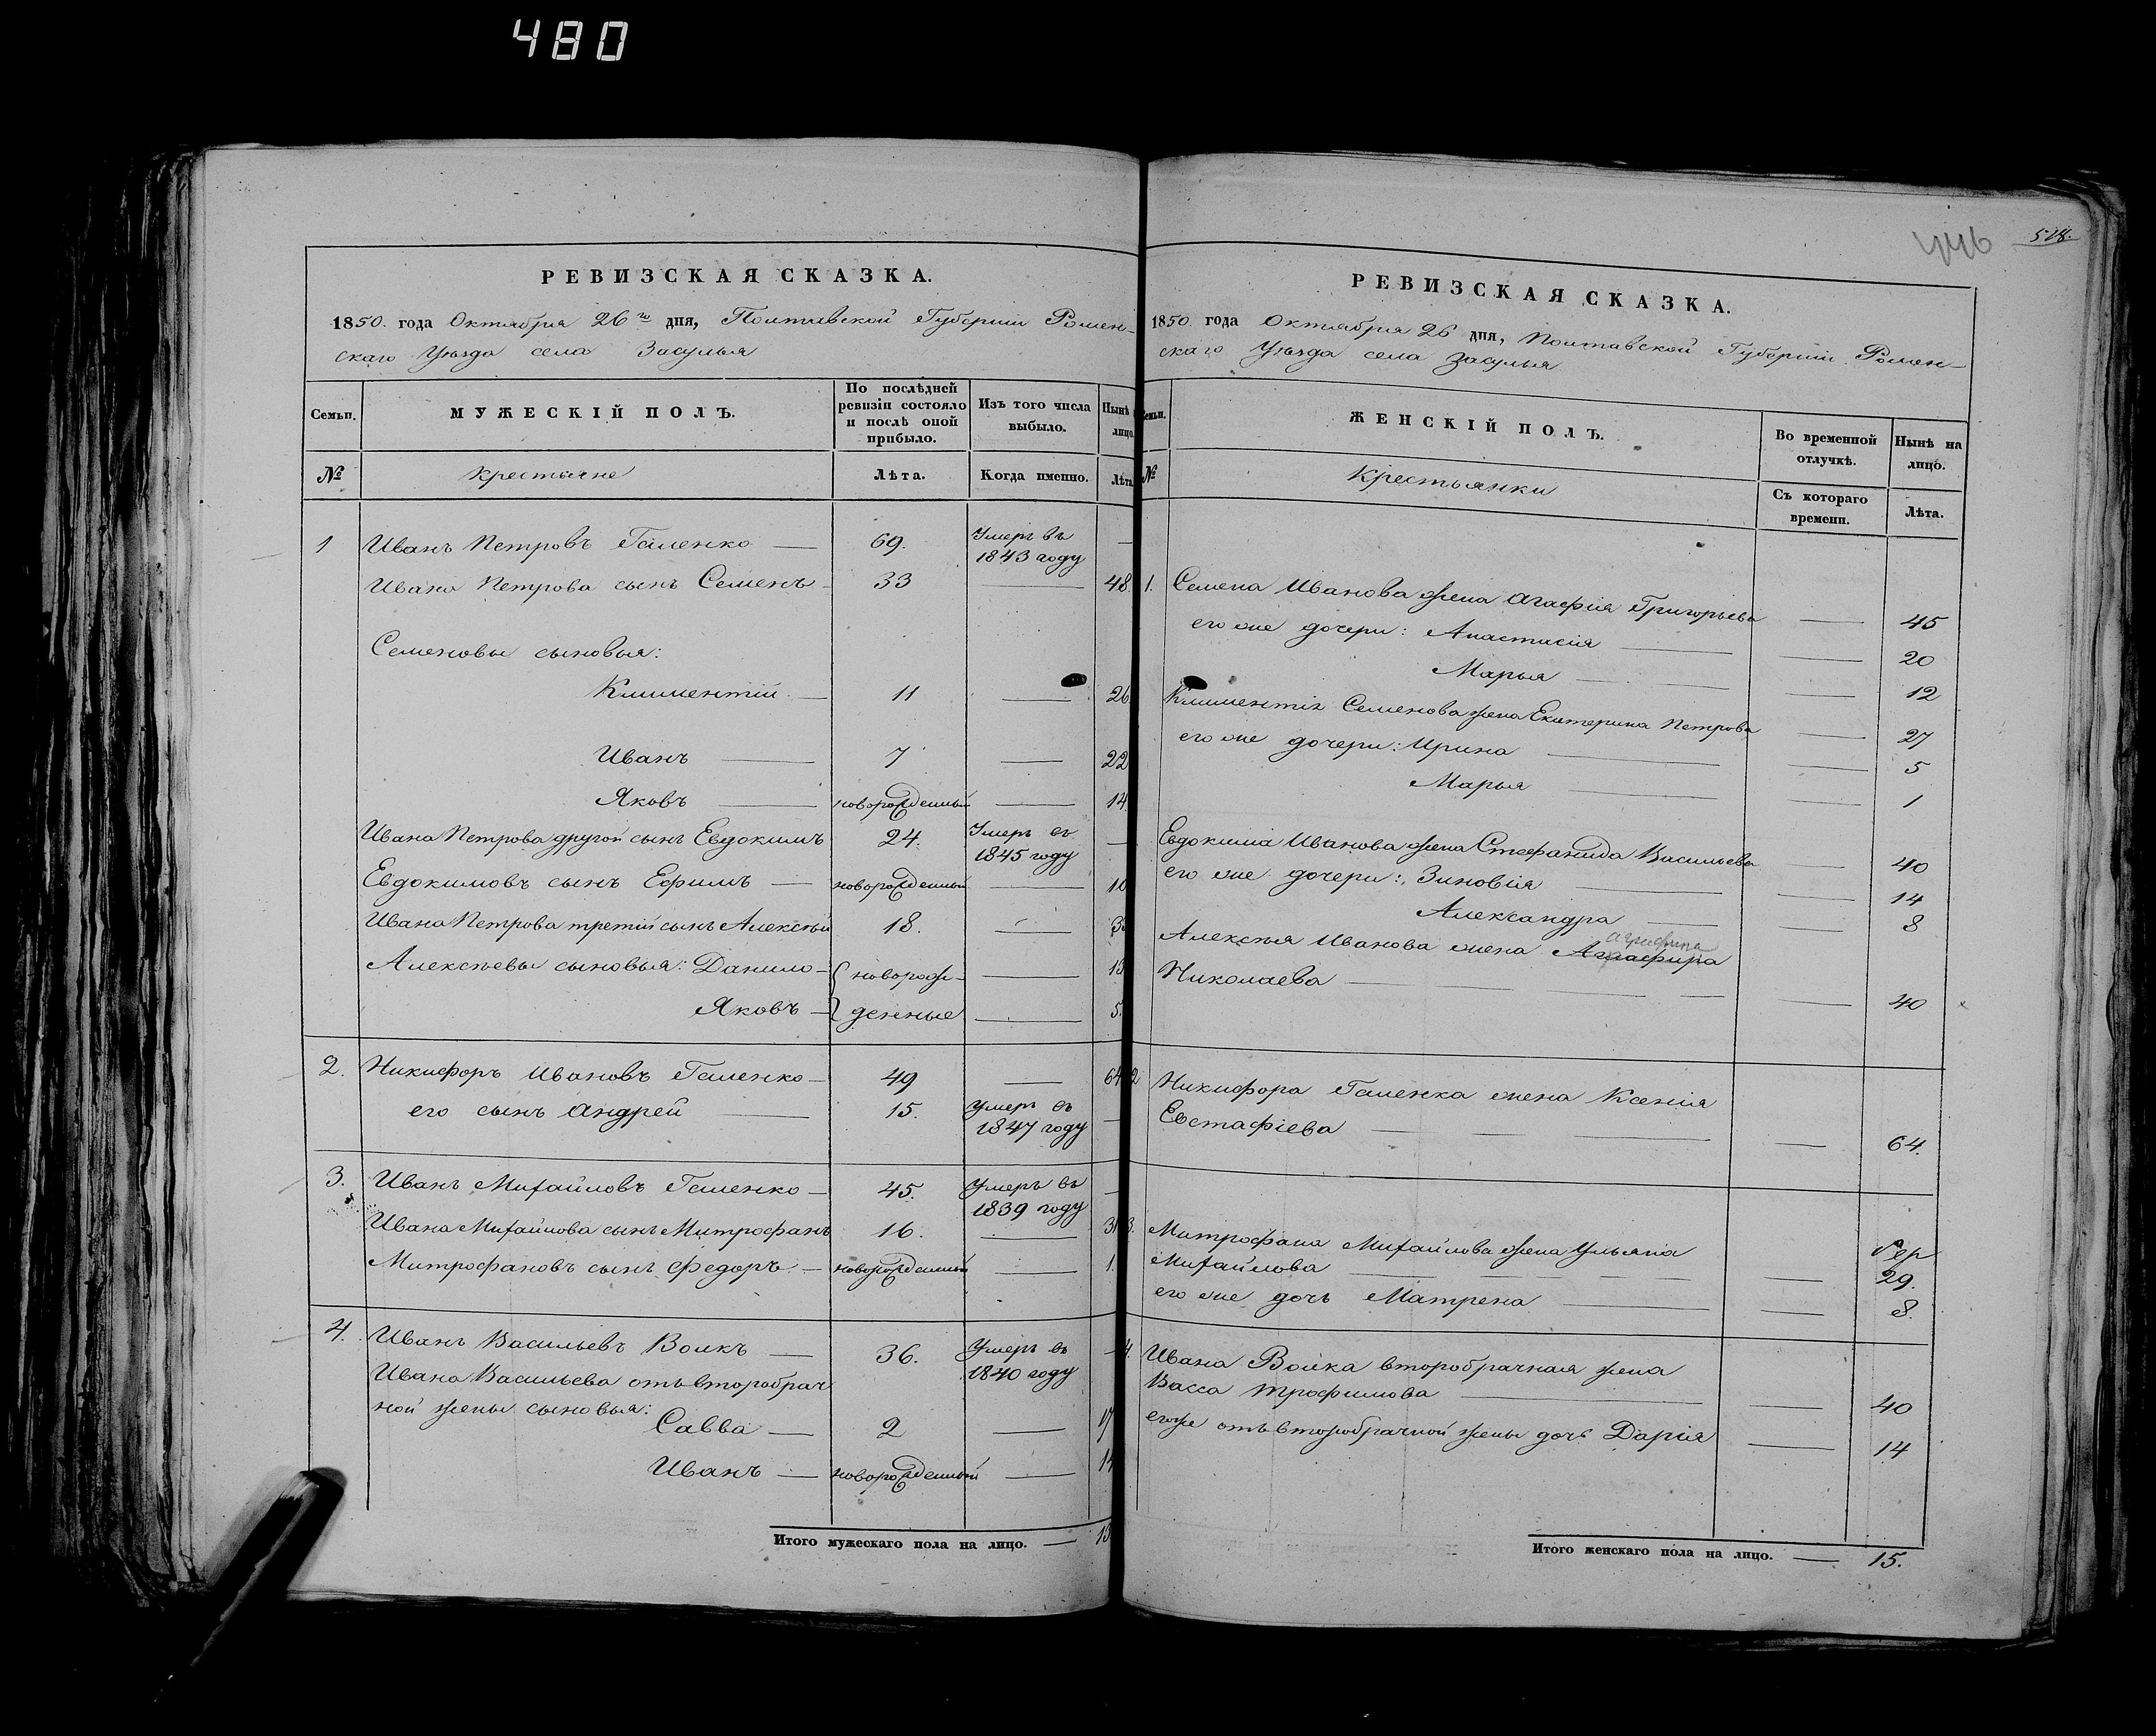 480
446 528.
РЕВИЗСКАЯ СКАЗКА.
1850. года Октября 26го дня, Полтавской Губерніи Ромен-
скаго Уѣзда села Засулья
Семьи. МУЖЕСКІЙ ПОЛЪ. По послѣдней ревизіи состояло и послѣ оной прибыло. Изъ того числа выбыло. Нынѣ лицо.
№ Крестьяне Лѣта. Когда именно. Лѣта
1 Иванъ Петровъ Галенко — 69. Умеръ въ 1843 году —
Ивана Петрова сынъ Семенъ 33 — 48
Семеновы сыновья:
Климентій — 11 — 26.
Иванъ — 7 — 22
Яковъ — новорожденный — 14.
Ивана Петрова другой сынъ Евдокимъ 24. Умеръ въ 1845 году —
Евдокимовъ сынъ Ефимъ — новорожденный — 10
Ивана Петрова третій сынъ Алексѣй 18. — 3
Алексѣевы сыновья: Данило — { новорож- — 13
Яковъ — } денные — 5.
2. Никифоръ Ивановъ Галенко — 49 — 64
его сынъ Андрей — 15. Умеръ въ 1847 году —
3. Иванъ Михайловъ Галенко — 45. Умеръ въ 1839 году —
Ивана Михайлова сынъ Митрофанъ 16. — 31
Митрофановъ сынъ Федоръ — новорожденный — 1.
4. Иванъ Васильевъ Волкъ — 36. Умеръ въ 1840 году —
Ивана Васильева отъ второбрач
ной жены сыновья:
Савва — 2 — 17
Иванъ — новорожденный — 14
Итого мужескаго пола на лицо. — 13
РЕВИЗСКАЯ СКАЗКА.
1850 года Октября 26 дня, Полтавской Губерніи Ромен-
скаго Уѣзда села Засулья
Семьи. ЖЕНСКІЙ ПОЛЪ. Во временной отлучкѣ. Нынѣ на лицо.
№ Крестьянки Съ котораго времени. Лѣта.
1. Семена Иванова жена Агафія Григорьева — 45
его же дочери: Анастасія — 20
Марья — 12
Климентія Семенова жена Екатерина Петрова — 27
его же дочери: Ирина — 5
Марья — 1
Евдокима Иванова жена Стефанида Васильева — 40
его же дочери: Зиновія — 14
Александра — 8
Алексѣя Иванова жена Агрифина
Николаева — 40
2 Никифора Галенка жена Ксенія
Евстафіева — 64.
3. Митрофана Михайлова жена Ульяна
Михайлова — 29.
его же дочь Матрена — 8.
4. Ивана Волка второбрачная жена
Васса Трофимова — 40
егоже отъ второбрачной жены дочь Дарія — 14
Итого женскаго пола на лицо. — 15.